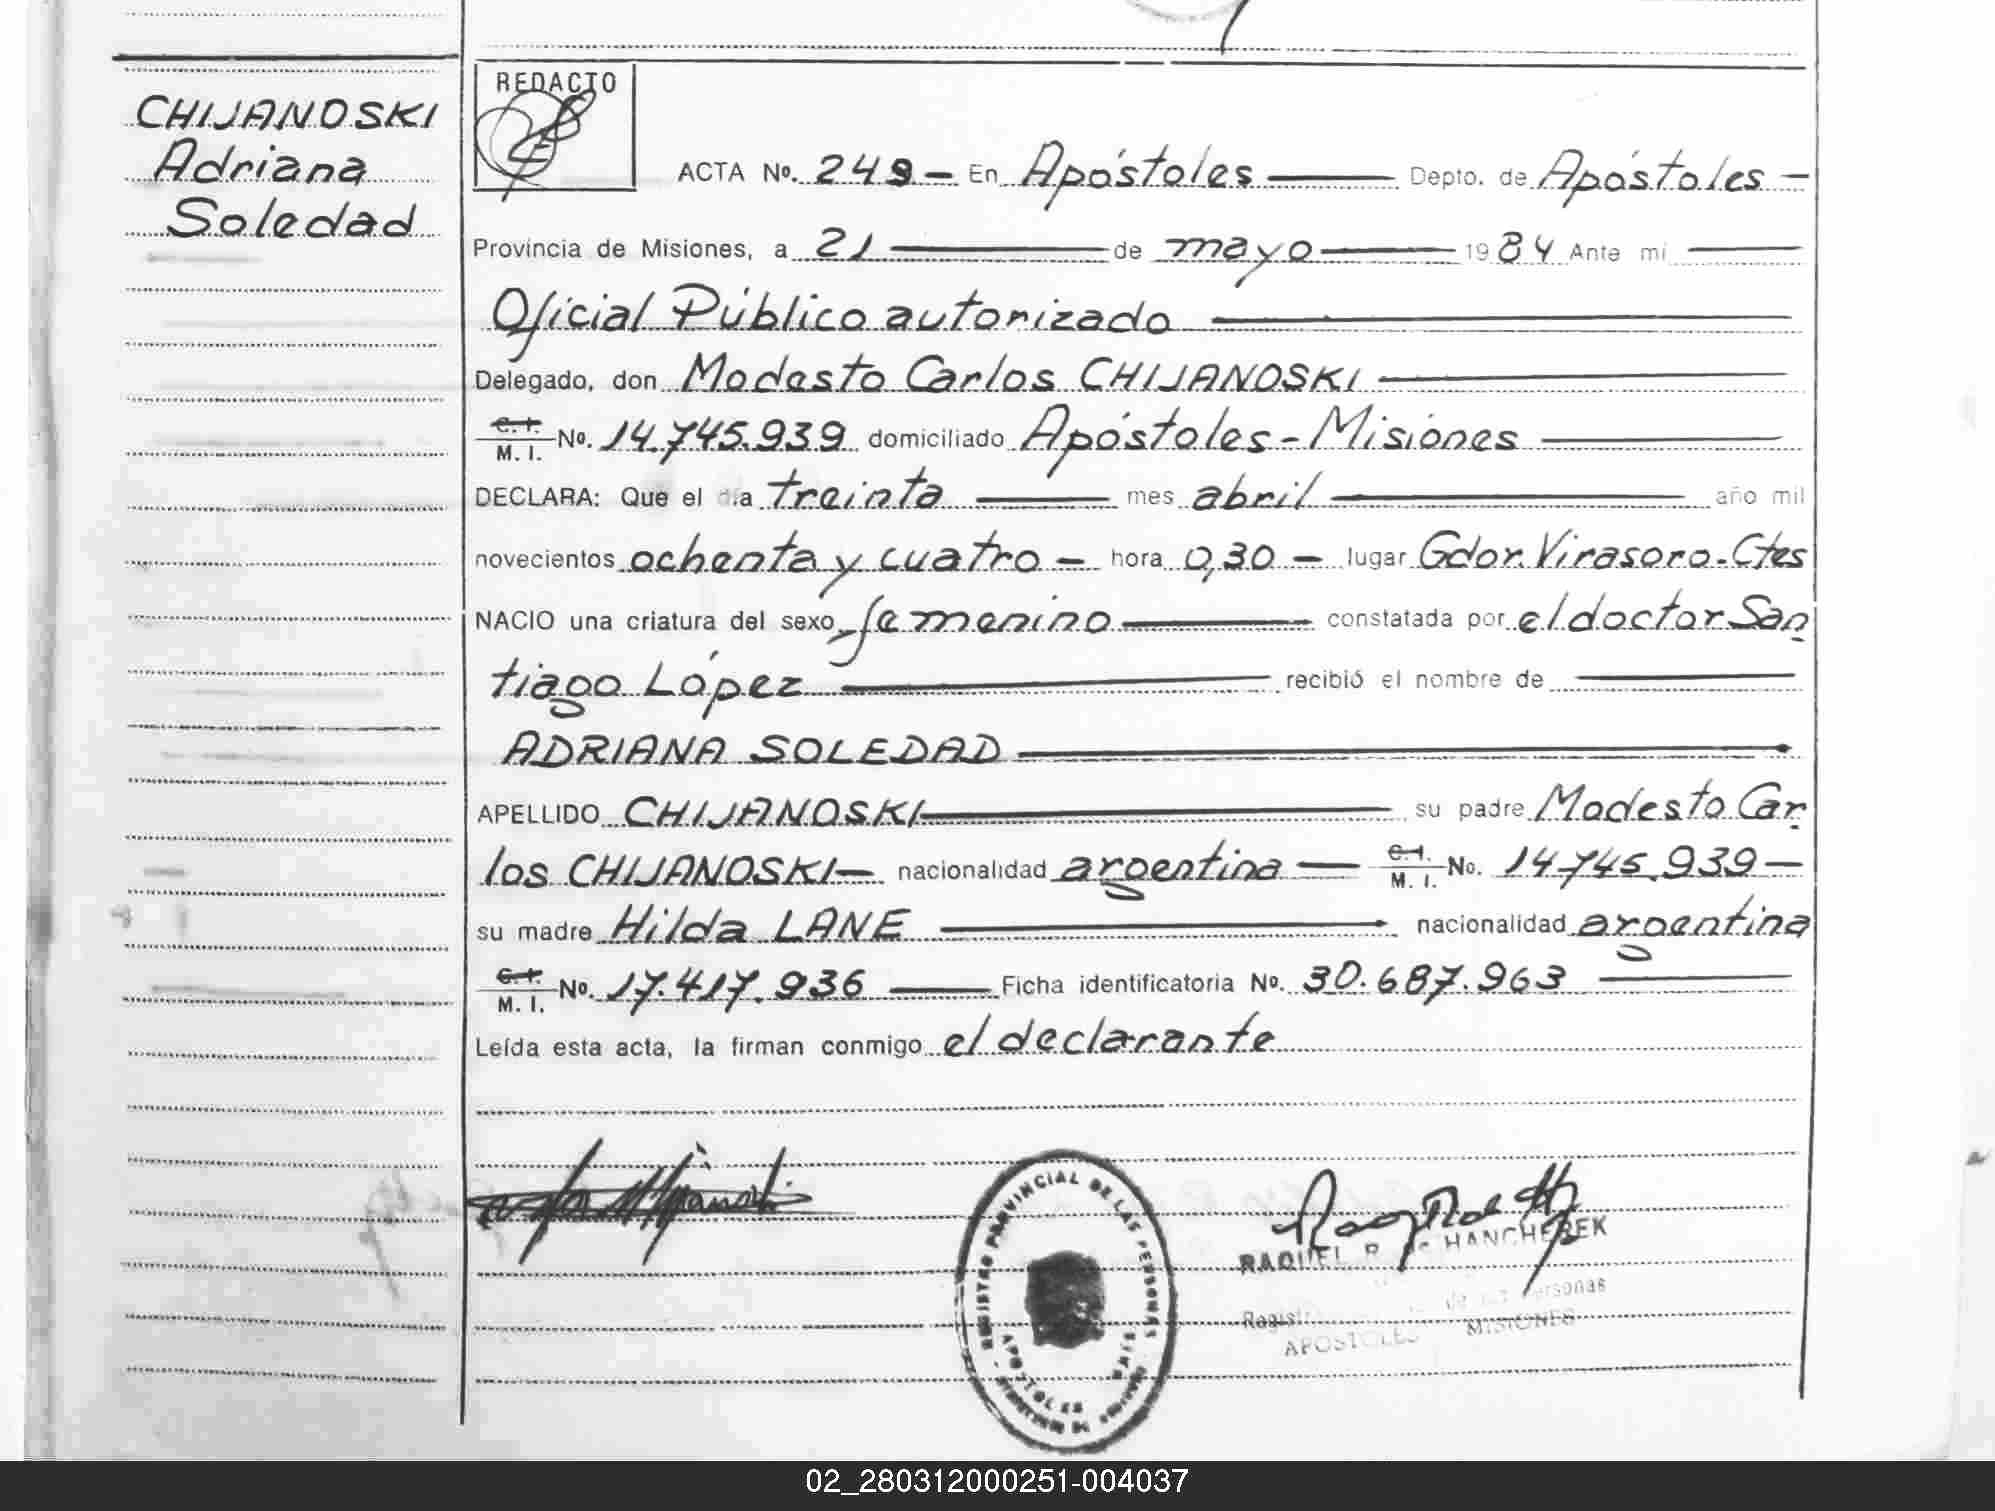 CHIJANOSKI
Adriana
Soledad
REDACTO
ACTA Nº. 249 – En Apóstoles — Depto. de Apóstoles –
Provincia de Misiones, a 21 — de mayo — 1984 Ante mí —
Oficial Público autorizado —
Delegado, don Modesto Carlos CHIJANOSKI —
C. I. / M. I. Nº. 14.745.939 domiciliado Apóstoles - Misiones —
DECLARA: Que el día treinta — mes abril — año mil
novecientos ochenta y cuatro – hora 0,30 – lugar Gdor. Virasoro - Ctes
NACIO una criatura del sexo femenino — constatada por el doctor San
tiago López — recibió el nombre de —
ADRIANA SOLEDAD —
APELLIDO CHIJANOSKI — su padre Modesto Car
los CHIJANOSKI — nacionalidad argentina — C. I. / M. I. No. 14.745.939 —
su madre Hilda LANE — nacionalidad argentina
C. I. / M. I. Nº. 17.417.936 — Ficha identificatoria Nº. 30.687.963 —
Leída esta acta, la firman conmigo el declarante
REGISTRO PROVINCIAL DE LAS PERSONAS
APOSTOLES
MNES
RAQUEL R. de HANCHEREK
de las Personas
APOSTOLES MISIONES
02_280312000251-004037